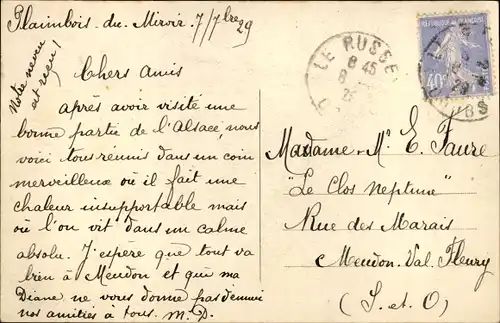 Plaimbois-du-Miroir. 7/7bre 29
Notre neveu
est reçu!
Chers Amis
après avoir visité une
bonne partie de l'Alsace, nous
voici tous réunis dans un coin
merveilleux où il fait une
chaleur insupportable mais
où l'on vit dans un calme
absolu. J'espère que tout va
bien à Meudon et que ma
Diane ne vous donne pas d'ennui
nos amitiés à tous. M.D.
LE RUSSEY
8 45
8
29
REPUBLIQUE FRANÇAISE
40c
DOUBS
Madame. Mr E. Faure
"Le Clos Neptune"
Rue des Marais
Meudon. Val. Fleury
(S. et O)